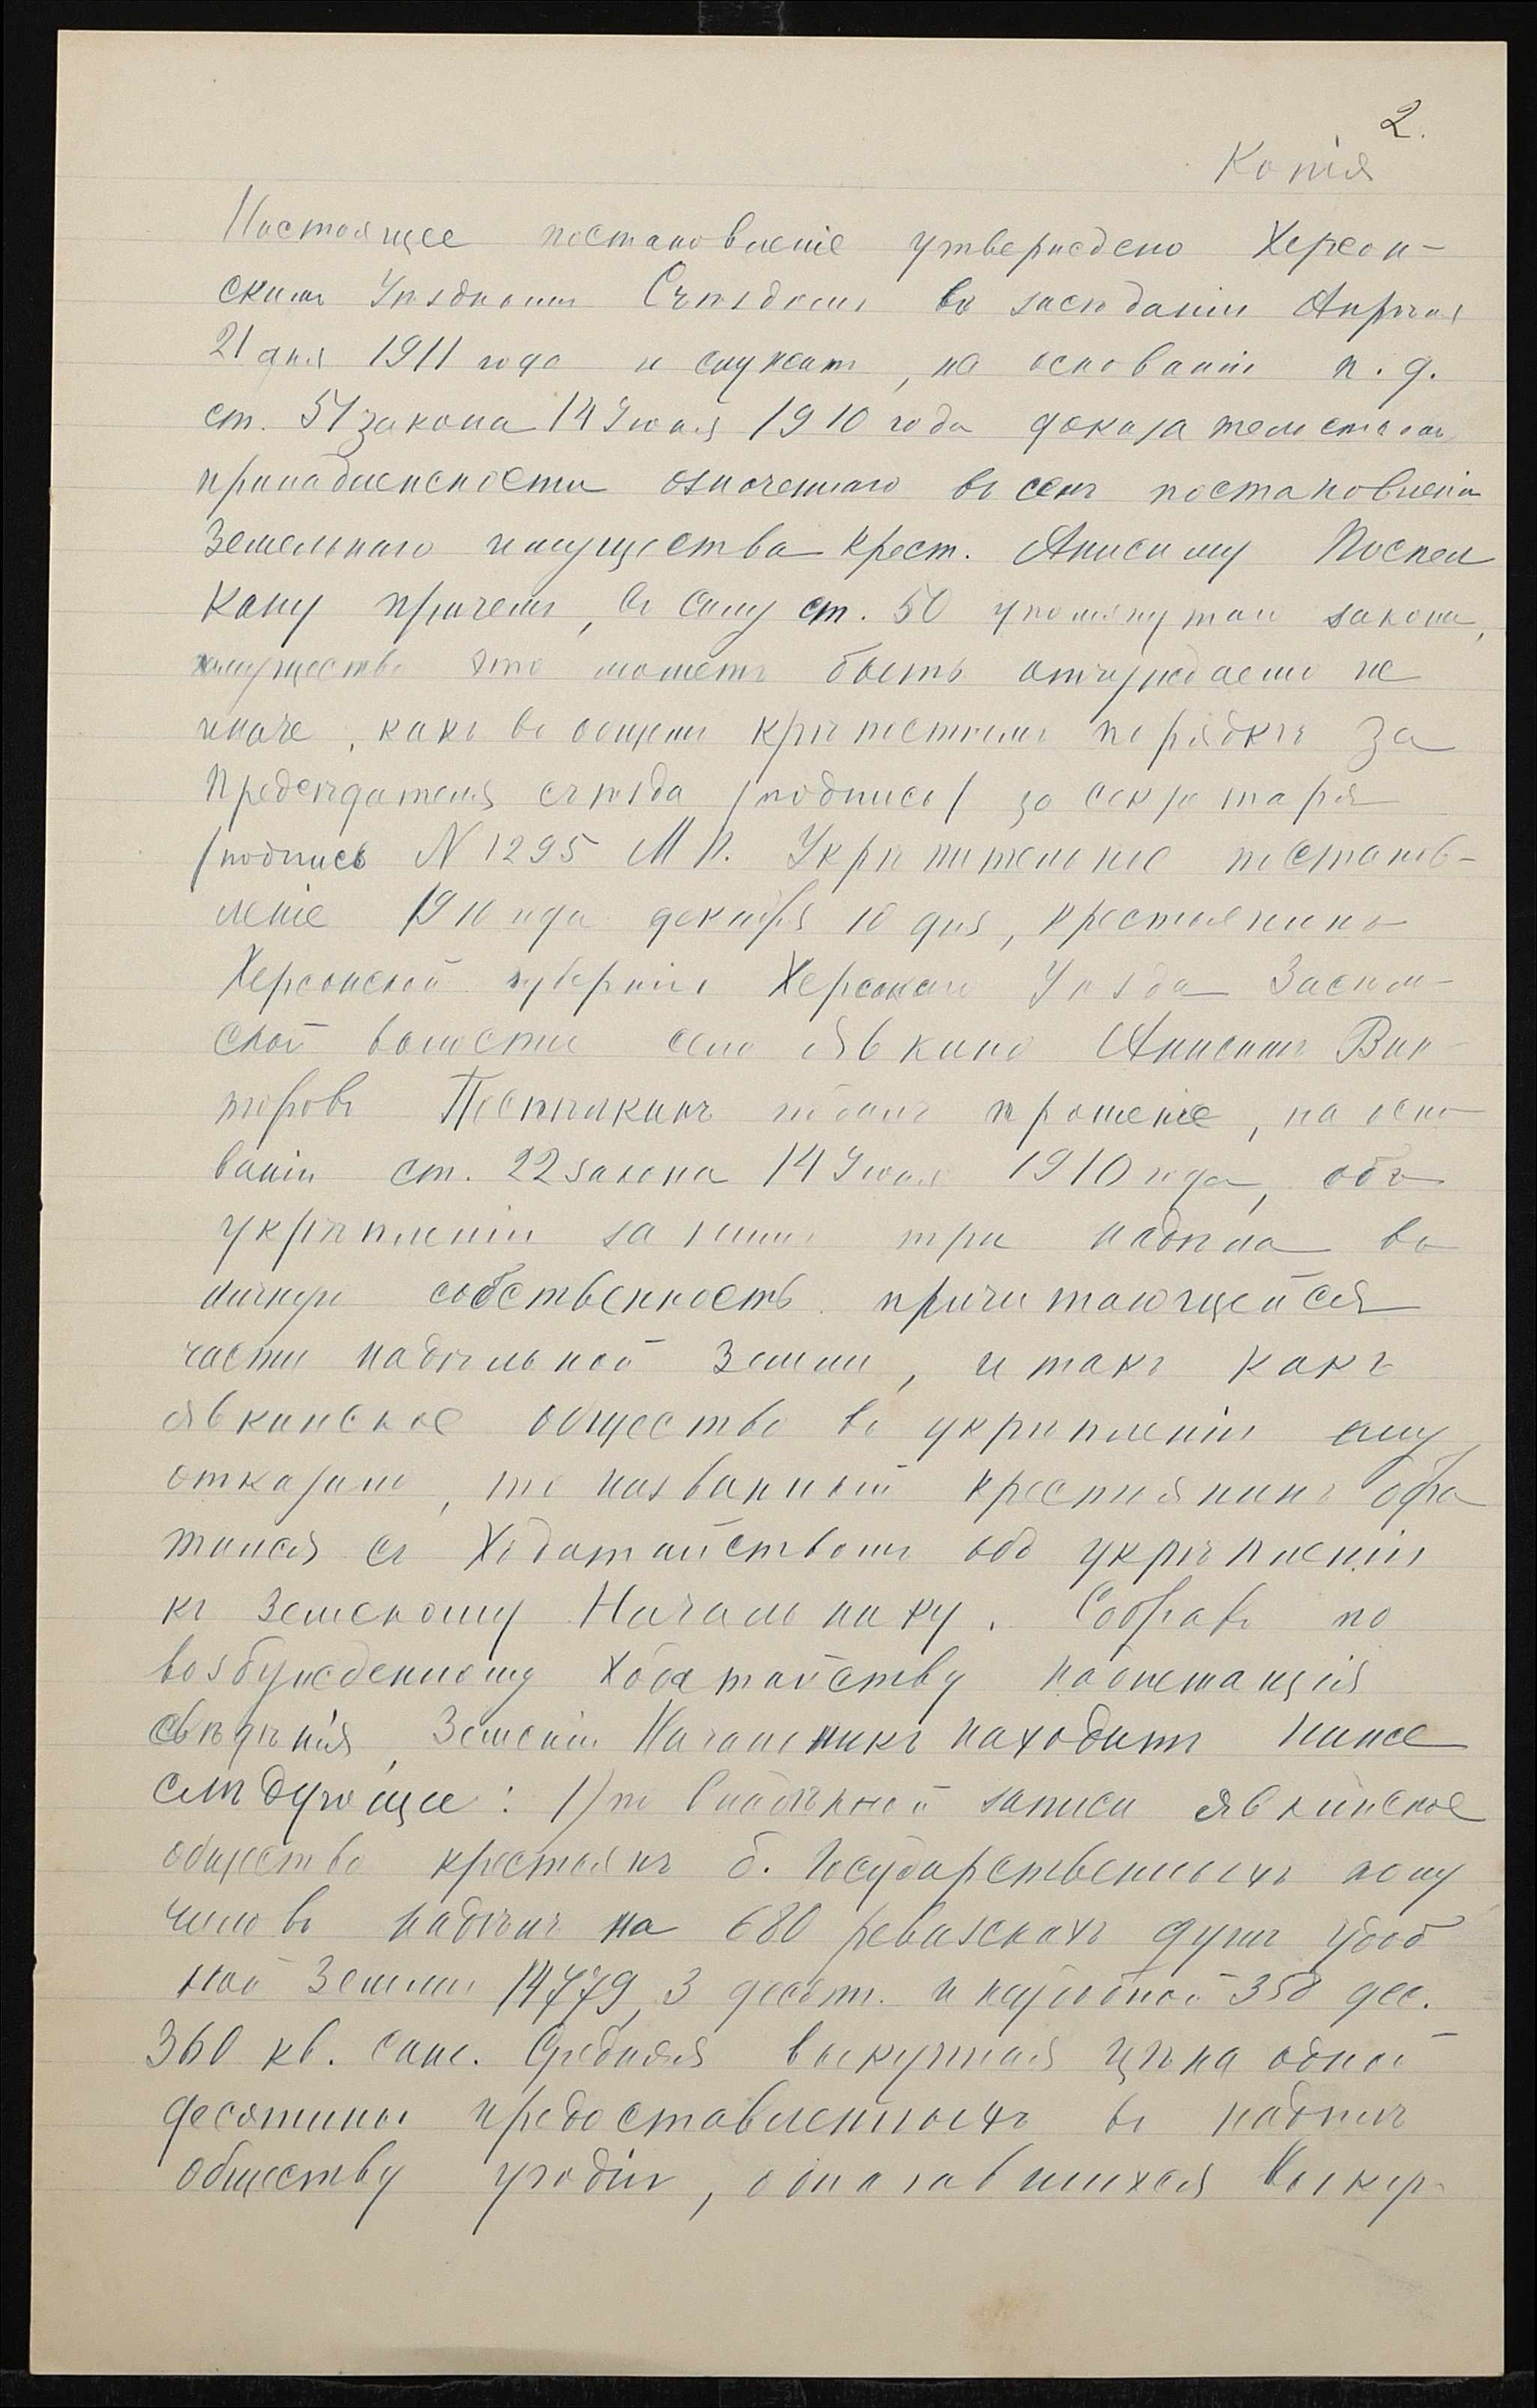 2.
Копія
Настоящее постановленіе утверждено Херсон-
скимъ Уѣзднымъ Съѣздомъ въ засѣданіи Апрѣля
21 дня 1911 года и служитъ, на основаніи п. д.
ст. 51 закона 14 Іюня 1910 года доказательствомъ
принадлежности означеннаго въ семъ постановленіи
земельнаго имущества крест. Анисиму Поспел
кану причемъ, въ силу ст. 50 упомянутаго закона,
имущество это можетъ быть отчуждаемо не
иначе, какъ въ общемъ крѣпостномъ порядкѣ За
Предсѣдателя съѣзда /подпись/ за секретаря
/подпись N 1295 М П. Укрѣпительное постанов-
леніе 1910 года декабря 10 дня, крестьянинъ
Херсонской губерніи Херсонскаго Уѣзда Засель-
ской волости села Явкино Анисимъ Вик
торовъ подалъ прошеніе, на осно
ваніи ст. 22 закона 14 Іюня 1910 года, объ
укрѣпленіи за нимъ три надѣла въ
личную собственность причитающейся
части надѣльной земли, и такъ какъ
явкинское общество въ укрѣпленіи ему
отказало, то названный крестьянинъ обра
тился съ ходатайствомъ объ укрѣпленіи
къ Земскому Начальнику. Собравъ по
возбужденному ходатайству надлежащія
свѣдѣнія, Земскій Начальникъ находитъ ниже
слѣдующее: 1) по владѣнной записи явкинское
общество крестьянъ б. Государственныхъ полу
чило въ надѣлъ на 680 ревизскихъ душъ удоб
ной земли 14779,3 десят. и неудобной 358 дес.
360 кв. саж. Средняя выкупная цѣна одной
десятины предоставленныхъ въ надѣлъ
обществу угодій, оплачивавшихся выкуп-